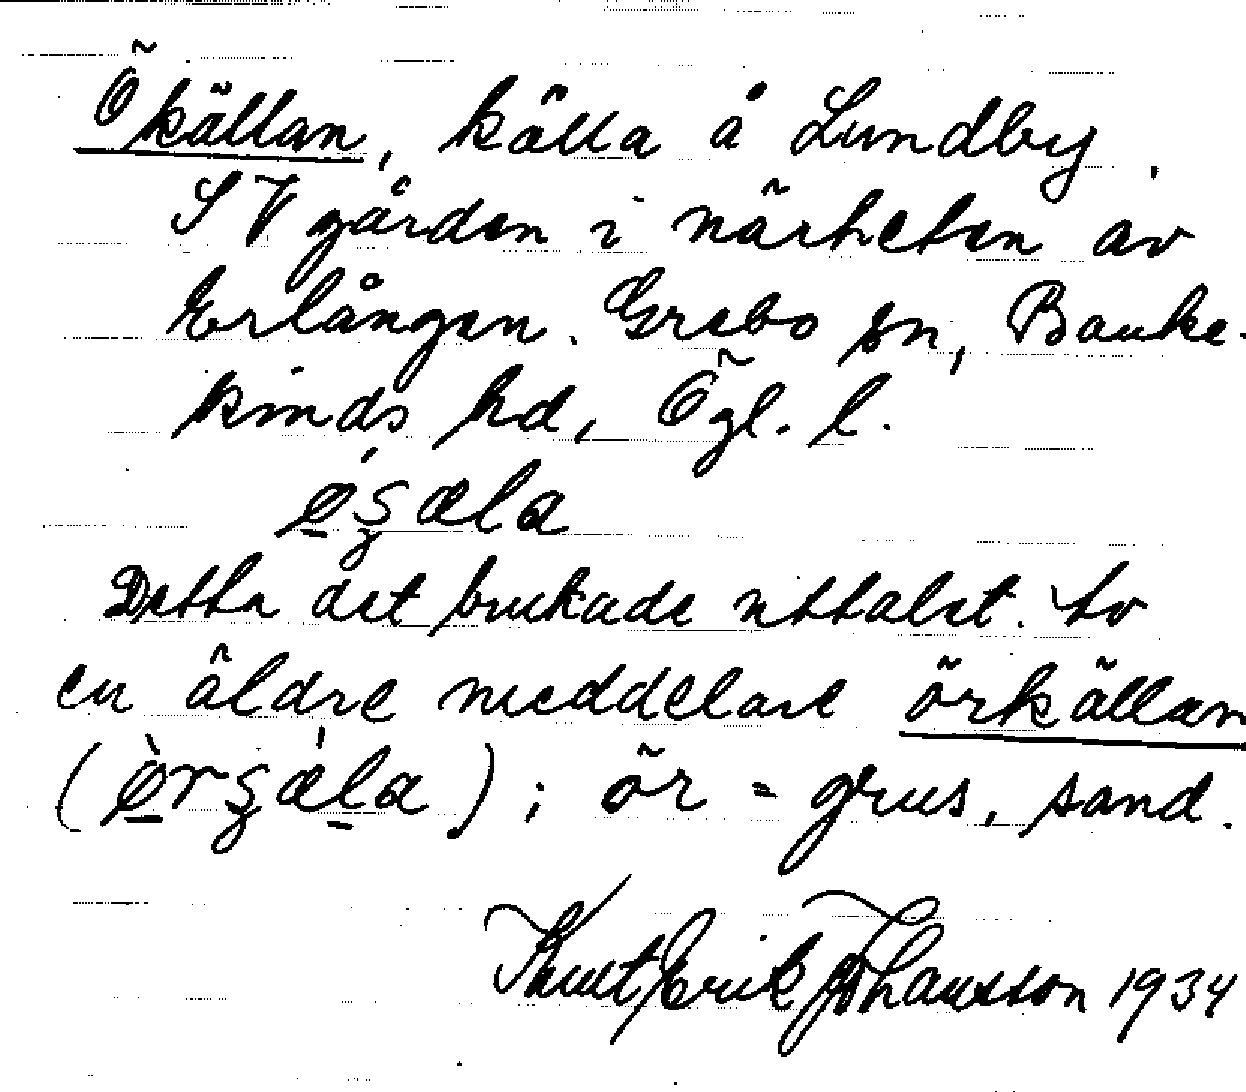 Ökällan, källa å Lundby,
SVgården i närheten av
Erlången. Grebo sn, Banke-
kinds hd, Ögl. l.
Detta det brukade uttalet. Av
en äldre meddelare örkällan
; ör = grus, sand.
Knut Erik Johansson 1934